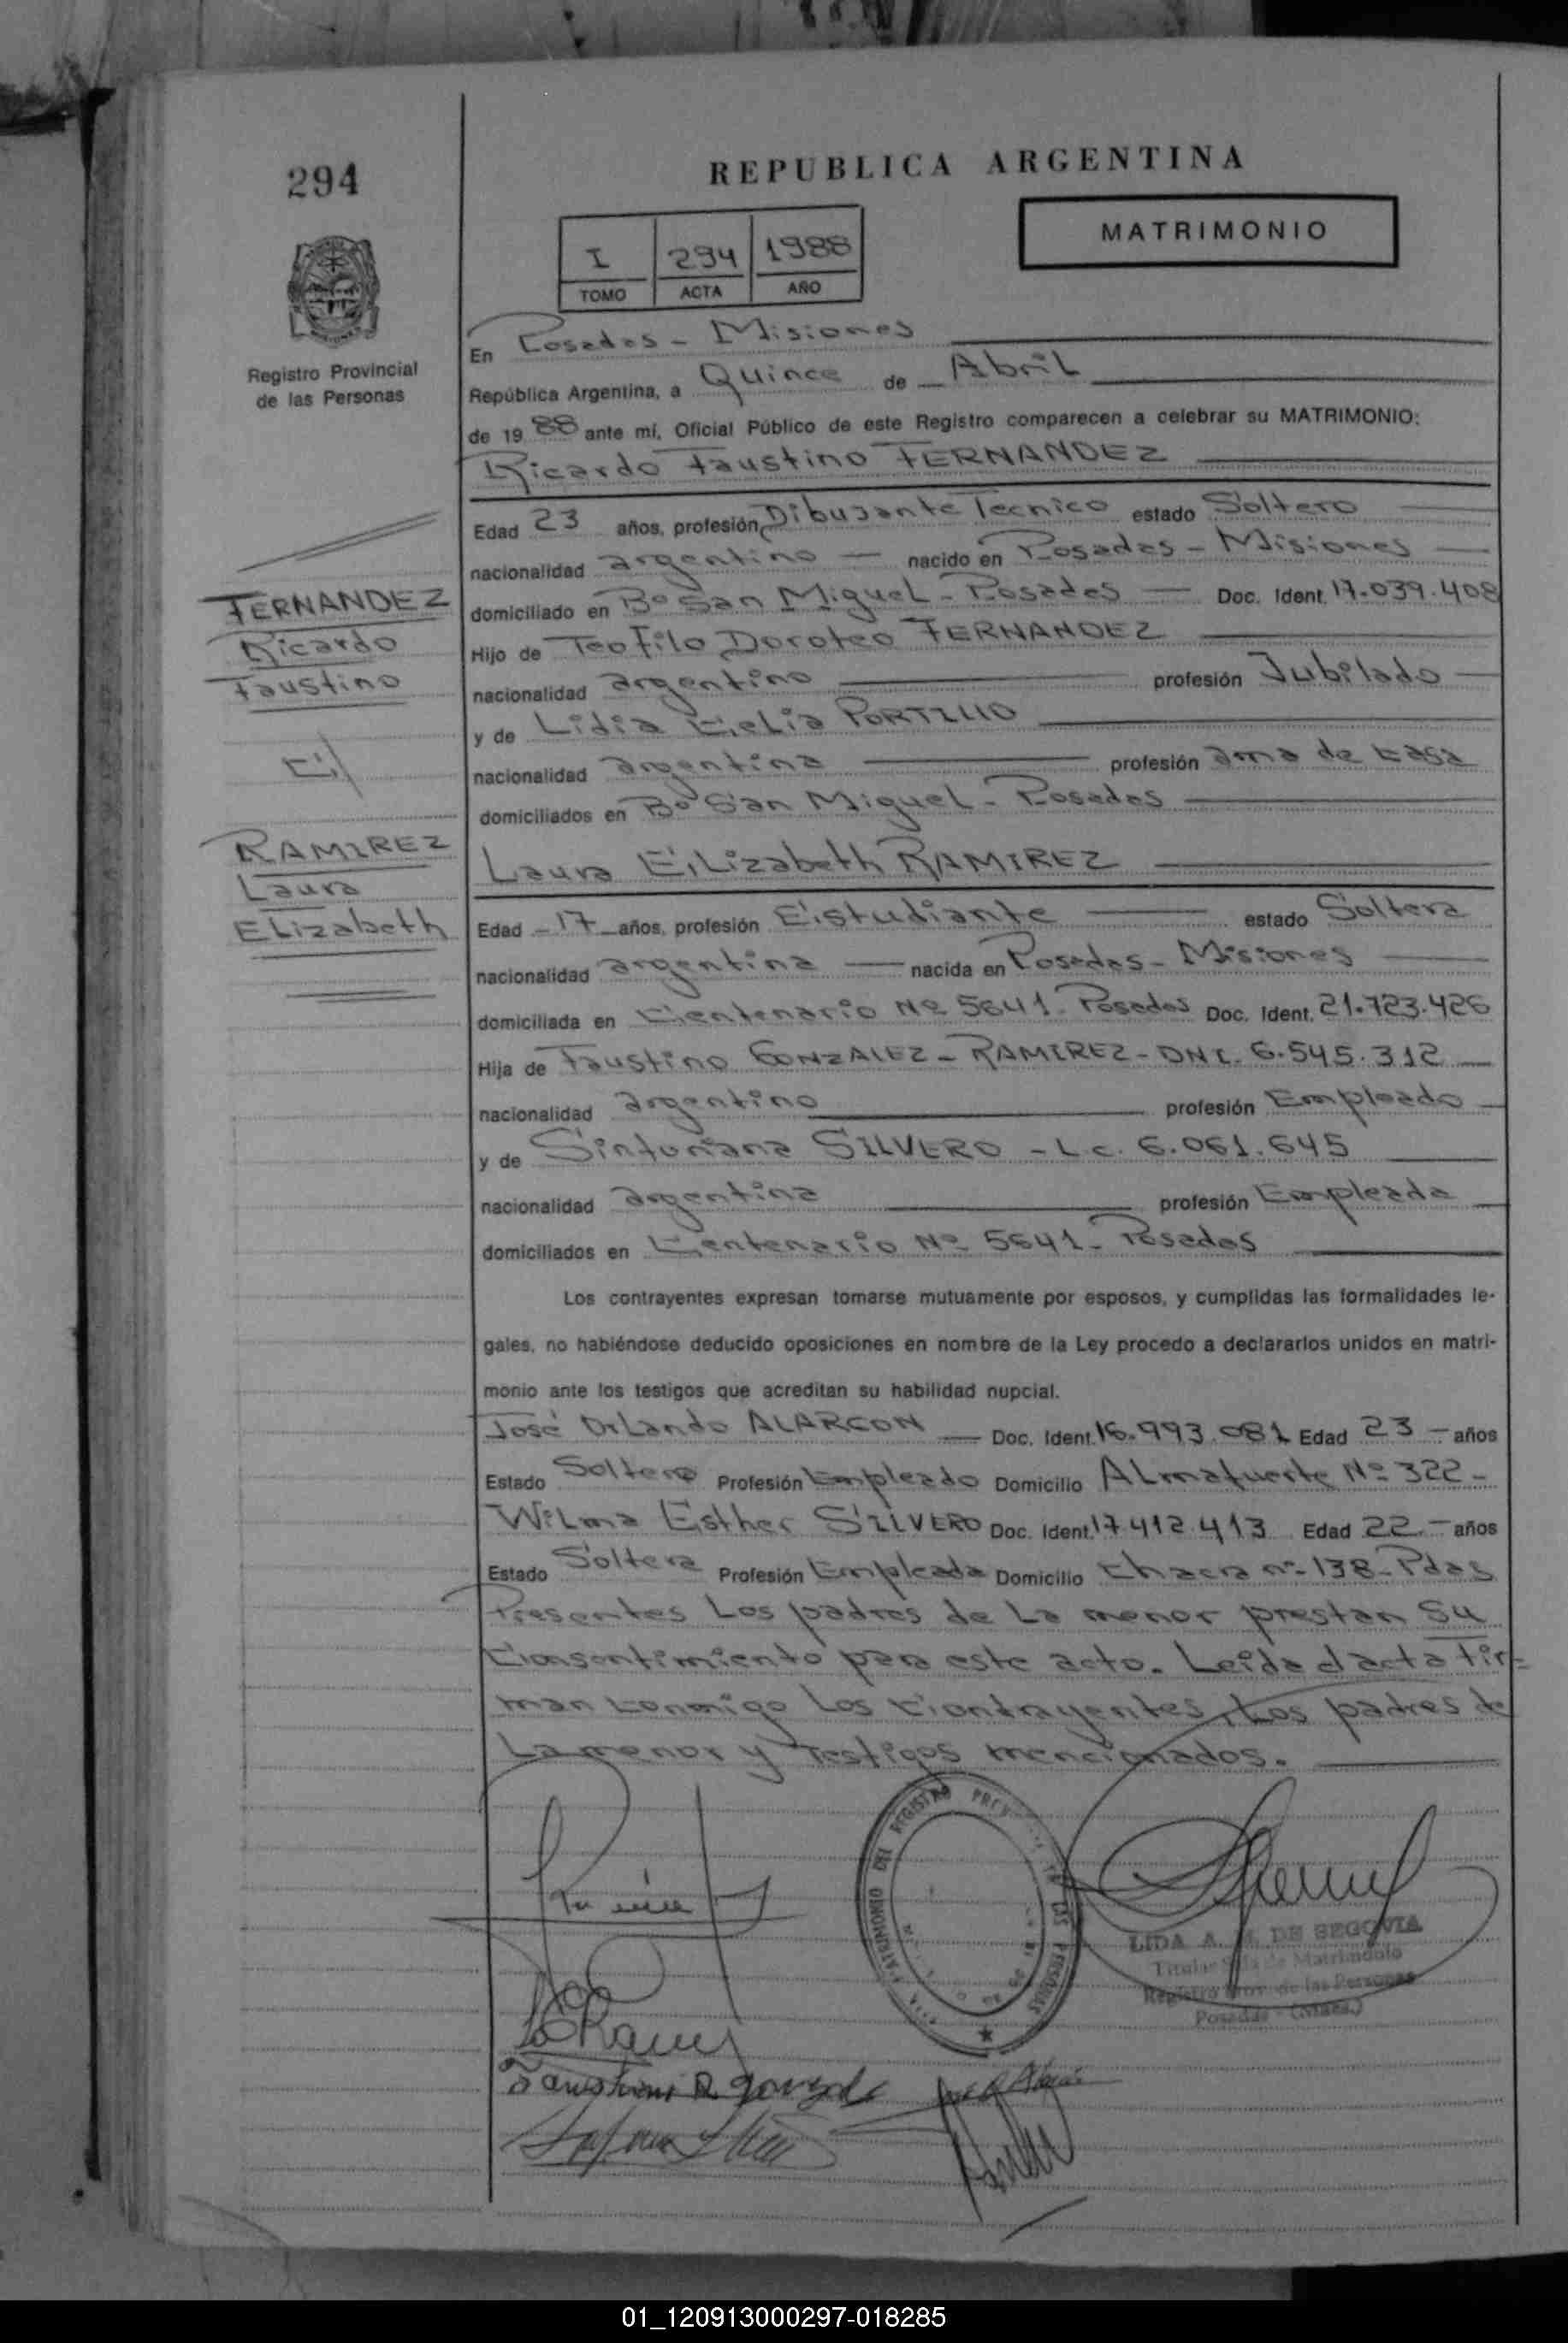 294
REPUBLICA ARGENTINA
MATRIMONIO
I 294 1988
TOMO ACTA AÑO
Registro Provincial
de las Personas
En Posadas - Misiones
República Argentina, a Quince de Abril
de 1988 ante mí, Oficial Público de este Registro comparecen a celebrar su MATRIMONIO:
Ricardo Faustino FERNANDEZ
Edad 23 años, profesión Dibujante Tecnico estado Soltero
nacionalidad argentino nacido en Posadas - Misiones
domiciliado en Bº San Miguel - Posadas Doc. Ident. 17.039.408
Hijo de Teofilo Doroteo FERNANDEZ
nacionalidad argentino profesión Jubilado
y de Lidia Celia PORTILLO
nacionalidad argentina profesión ama de casa
domiciliados en Bº San Miguel - Posadas
FERNANDEZ
Ricardo
Faustino
C/
RAMIREZ
Laura
Elizabeth
Laura Elizabeth RAMIREZ
Edad - 17 - años, profesión Estudiante estado Soltera
nacionalidad argentina nacida en Posadas - Misiones
domiciliada en Centenario Nº 5641 - Posadas Doc. Ident. 21.723.426
Hija de Faustino GONZALEZ - RAMIREZ - DNI. 6.545.312
nacionalidad argentino profesión Empleado
y de Sinforiana SILVERO - L.c. 6.061.645
nacionalidad argentina profesión Empleada
domiciliados en Centenario Nº 5641 - Posadas
Los contrayentes expresan tomarse mutuamente por esposos, y cumplidas las formalidades le-
gales, no habiéndose deducido oposiciones en nombre de la Ley procedo a declararlos unidos en matri-
monio ante los testigos que acreditan su habilidad nupcial.
José Orlando ALARCON Doc. Ident. 16.993.081 Edad 23 - años
Estado Soltero Profesión Empleado Domicilio Almafuerte Nº 322 -
Wilma Esther SILVERO Doc. Ident. 17.412.413 Edad 22 - años
Estado Soltera Profesión Empleada Domicilio Chacra nº 138 - Pdas
Presentes Los padres de La menor prestan su
Consentimiento para este acto. Leida el acta fir=
man conmigo Los Contrayentes, Los padres de
La menor y Testigos mencionados.
LIDA A. M. DE SEGOVIA
Titular Sala de Matrimonio
Registro Prov. de las Personas
Posadas - (Mnes.)
01_120913000297-018285